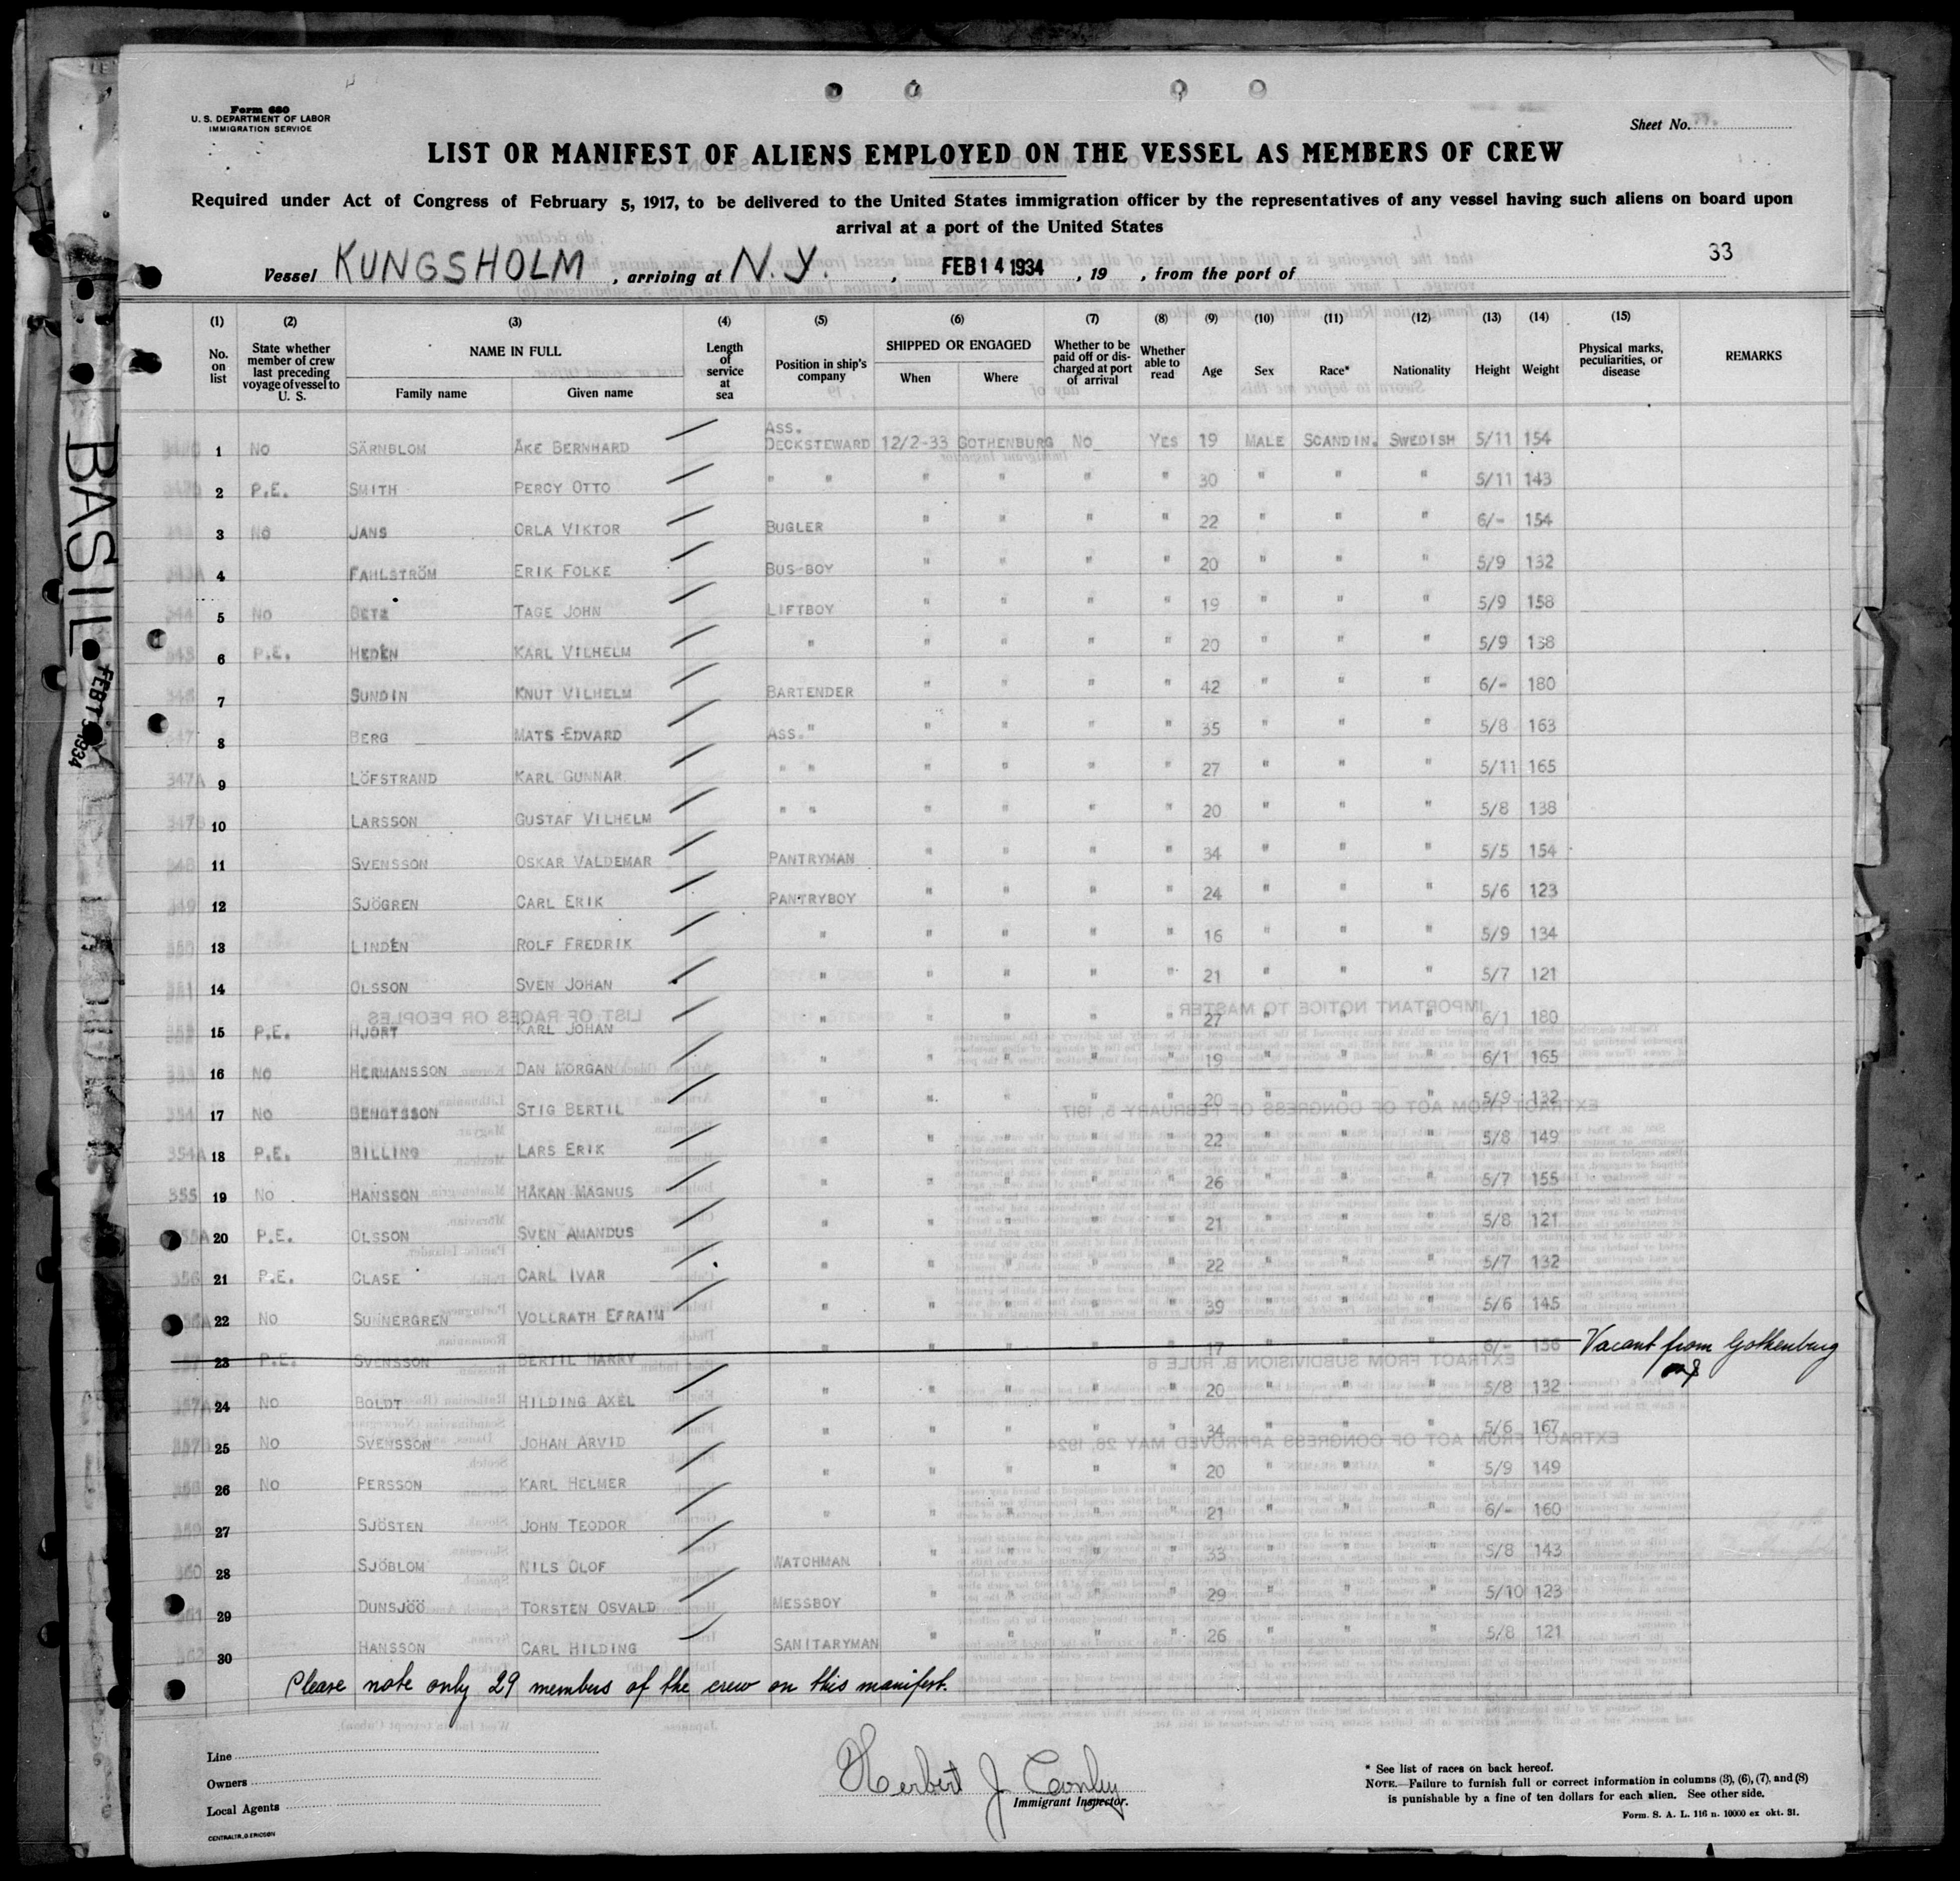 Form 680
U. S. DEPARTMENT OF LABOR
IMMIGRATION SERVICE
Sheet No.
LIST OR MANIFEST OF ALIENS EMPLOYED ON THE VESSEL AS MEMBERS OF CREW
Required under Act of Congress of February 5, 1917, to be delivered to the United States immigration officer by the representatives of any vessel having such aliens on board upon
arrival at a port of the United States
33
Vessel KUNGSHOLM, arriving at N.Y., FEB 14 1934, 19 , from the port of
(1) No. on list (2) State whether member of crew last preceding voyage of vessel to U. S. (3) NAME IN FULL Family name Given name (4) Length of service at sea (5) Position in ship's company (6) SHIPPED OR ENGAGED When Where (7) Whether to be paid off or discharged at port of arrival (8) Whether able to read (9) Age (10) Sex (11) Race* (12) Nationality (13) Height (14) Weight (15) Physical marks, peculiarities, or disease REMARKS
1 NO SÄRNBLOM ÅKE BERNHARD ASS. DECKSTEWARD 12/2-33 GOTHENBURG NO YES 19 MALE SCANDIN. SWEDISH 5/11 154
2 P.E. SMITH PERCY OTTO " " " " " " 30 " " " 5/11 143
3 NO JANS ORLA VIKTOR BUGLER " " " " 22 " " " 6/- 154
4 FAHLSTRÖM ERIK FOLKE BUS-BOY " " " " 20 " " " 5/9 132
5 NO BETZ TAGE JOHN LIFTBOY " " " " 19 " " " 5/9 158
6 P.E. HEDÉN KARL VILHELM " " " " " 20 " " " 5/9 138
7 SUNDIN KNUT VILHELM BARTENDER " " " " 42 " " " 6/- 180
8 BERG MATS EDVARD ASS. " " " " " 35 " " " 5/8 163
347A 9 LÖFSTRAND KARL GUNNAR " " " " " " 27 " " " 5/11 165
10 LARSSON GUSTAF VILHELM " " " " " " 20 " " " 5/8 138
11 SVENSSON OSKAR VALDEMAR PANTRYMAN " " " " 34 " " " 5/5 154
12 SJÖGREN CARL ERIK PANTRYBOY " " " " 24 " " " 5/6 123
13 LINDÉN ROLF FREDRIK " " " " " 16 " " " 5/9 134
14 OLSSON SVEN JOHAN " " " " " 21 " " " 5/7 121
15 P.E. HJORT KARL JOHAN " " " " " 27 " " " 6/1 180
16 NO HERMANSSON DAN MORGAN " " " " " 19 " " " 6/1 165
17 NO BENGTSSON STIG BERTIL " " " " " 20 " " " 5/9 132
354A 18 P.E. BILLING LARS ERIK " " " " " 22 " " " 5/8 149
355 19 NO HANSSON HÅKAN MAGNUS " " " " " 26 " " " 5/7 155
20 P.E. OLSSON SVEN AMANDUS " " " " " 21 " " " 5/8 121
356 21 P.E. CLASE CARL IVAR " " " " " 22 " " " 5/7 132
22 NO SUNNERGREN VOLLRATH EFRAIM " " " " " 39 " " " 5/6 145
23 P.E. SVENSSON BERTIL HARRY " " " " " 17 " " " 6/- 156 Vacant from Gothenburg
357A 24 NO BOLDT HILDING AXEL " " " " " 20 " " " 5/8 132
25 NO SVENSSON JOHAN ARVID " " " " " 34 " " " 5/6 167
26 NO PERSSON KARL HELMER " " " " " 20 " " " 5/9 149
27 SJÖSTEN JOHN TEODOR " " " " " 21 " " " 6/- 160
360 28 SJÖBLOM NILS OLOF WATCHMAN " " " " 33 " " " 5/8 143
29 DUNSJÖÖ TORSTEN OSVALD MESSBOY " " " " 29 " " " 5/10 123
362 30 HANSSON CARL HILDING SANITARYMAN " " " " 26 " " " 5/8 121
Please note only 29 members of the crew on this manifest.
Line
Owners
Local Agents
CENTRALTR., G. ERICSON
Herbert J
Immigrant Inspector.
* See list of races on back hereof.
NOTE.—Failure to furnish full or correct information in columns (3), (6), (7), and (8)
is punishable by a fine of ten dollars for each alien. See other side.
Form. S. A. L. 116 n. 10000 ex okt. 31.
BASIL
FEB 1934